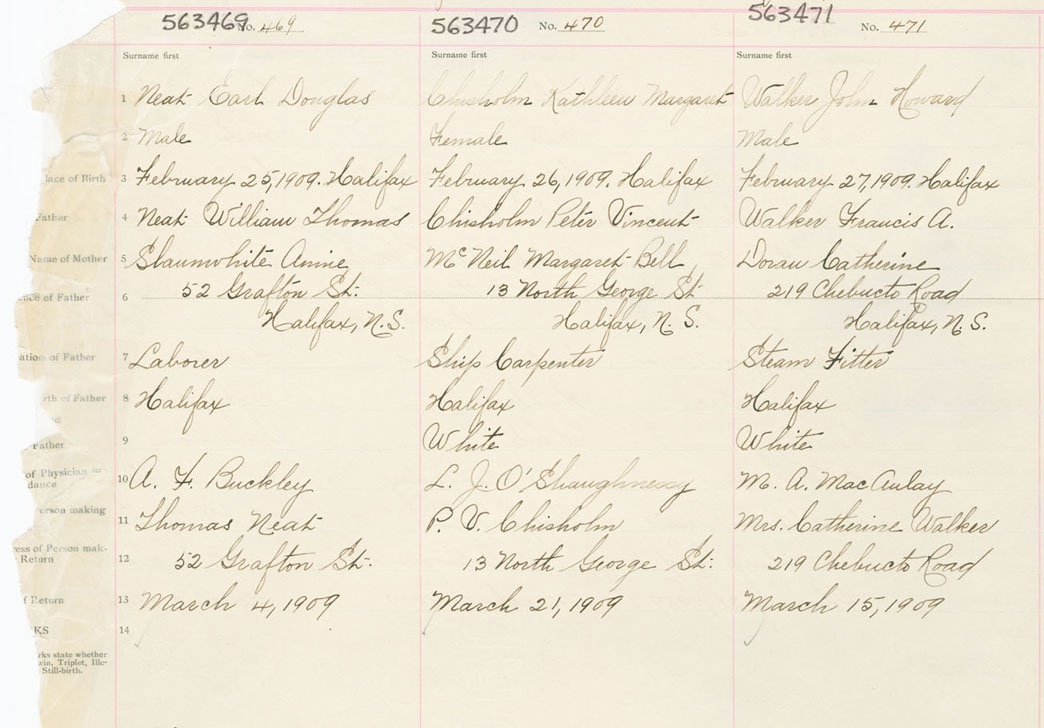 563469 No. 469
563470 No. 470
563471 No. 471
Surname first
Surname first
Surname first
1 Neat Earl Douglas
Chisholm Kathleen Margaret
Walker John Howard
2 Male
Female
Male
lace of Birth 3 February 25, 1909. Halifax
February 26, 1909. Halifax
February 27, 1909. Halifax
Father 4 Neat William Thomas
Chisholm Peter Vincent
Walker Francis A.
Name of Mother 5 Shaunwhite Annie
McNeil Margaret Bell
Doran Catherine
nce of Father 6 52 Grafton St.
13 North George St.
219 Chebucto Road
Halifax, N.S.
Halifax, N.S.
Halifax, N.S.
ation of Father 7 Laborer
Ship Carpenter
Steam Fitter
rth of Father 8 Halifax
Halifax
Halifax
ce
Father 9
White
White
of Physician in
dance 10 A. F. Buckley
L. J. O'Shaughnessy
M. A. MacAulay
erson making
11 Thomas Neat
P. V. Chisholm
Mrs. Catherine Walker
ress of Person mak-
Return 12 52 Grafton St.
13 North George St.
219 Chebucto Road
f Return 13 March 4, 1909
March 21, 1909
March 15, 1909
KS 14
rks state whether
in, Triplet, Ille-
Still-birth.